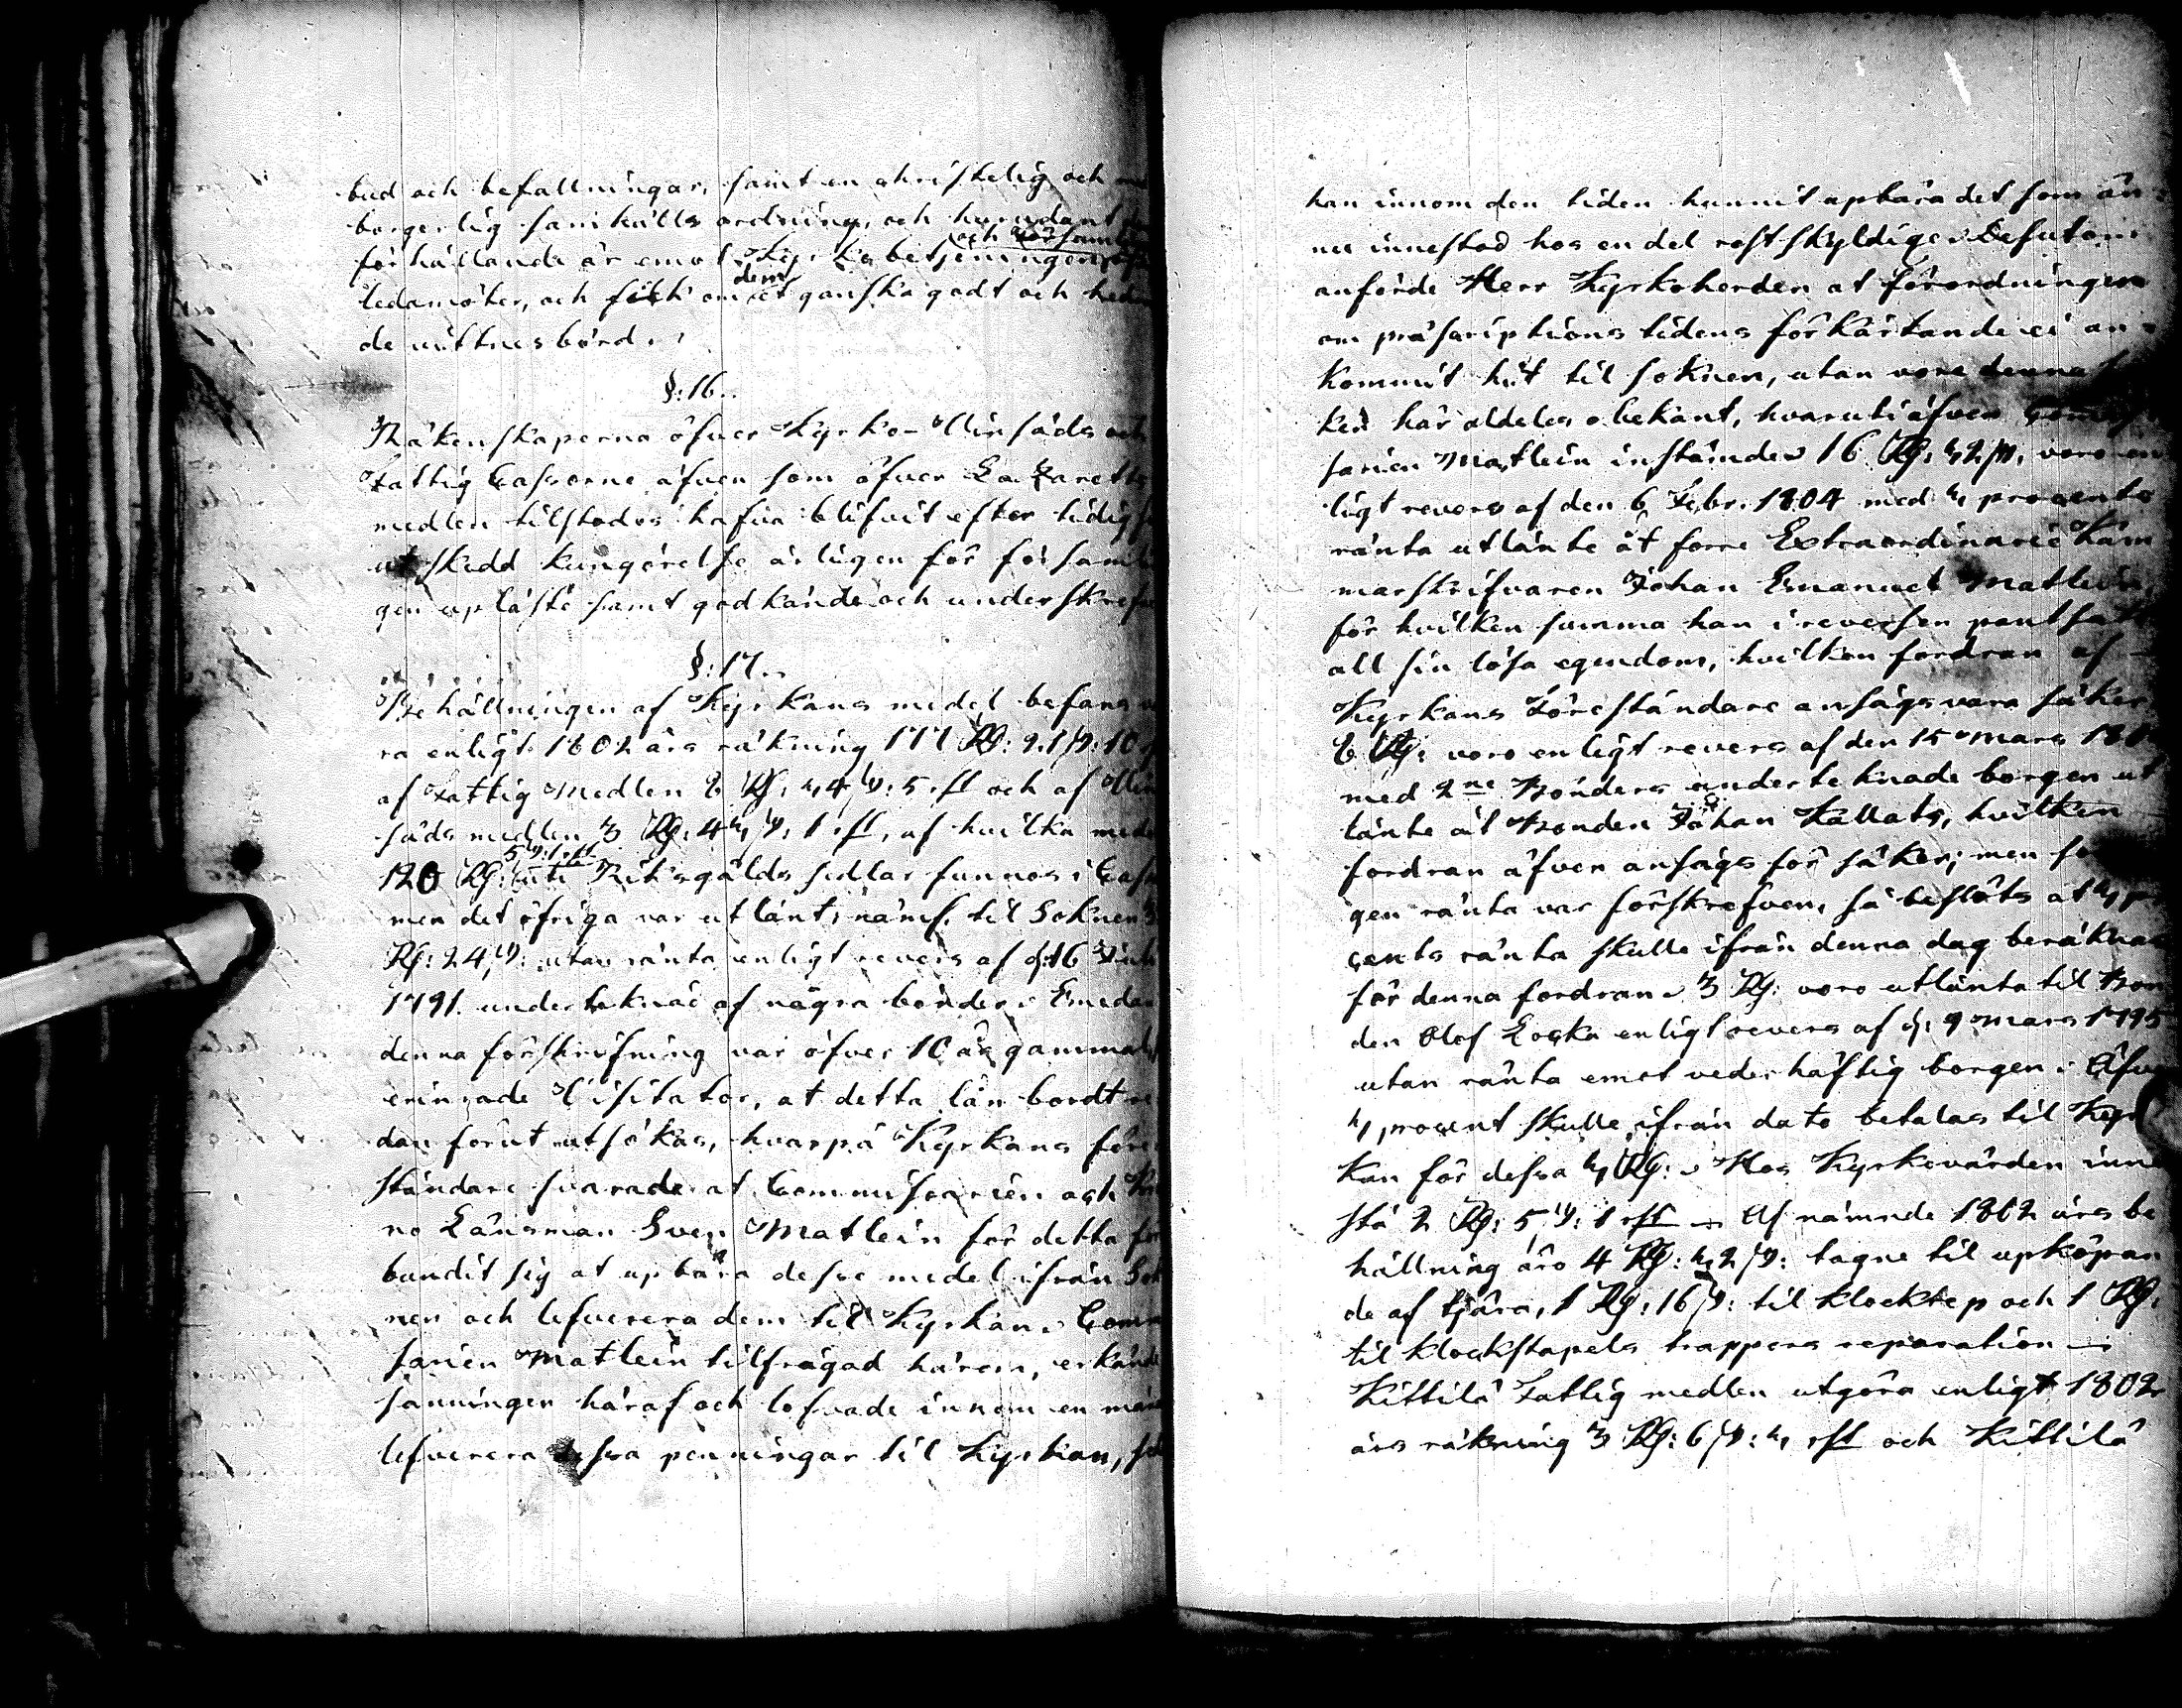 bud och befallningar, samt en christelig och
borgerlig samhälls ordning, och hurudant
och
förhållande är emot Kyrko betjeningen
dem
ledamöter, och fick om et ganska godt och
de vittnesbörd.
§: 16.
Räkenskaperna öfver Kyrko- Vinsäds och
Fattig Cassorne äfven som öfver Lazaretts
medlen tilstodos hafva blifvit efter tidig
ut skedd kungörelse årligen för
gen upläste samt godkände och
§: 17.
Behållningen af Kyrkans medel befans
ra enligt 1802 års räkning 177 Rd:
af Fattig Medlen Rd: 5 rst och af
säds medlen 3 Rd: 1 rst, af hvilka
5 ß: 1 rst
120 Rd: uti Riksgälds sedlar funnos i
men det öfriga var utlånt, nämf. til Soknen
Rd: 24 ß: utan ränta enligt revers af d: 16
1791. underteknad af några bönder.
denna förskrifning var öfver 10 år gammal,
erinrade Visitator, at detta lån bordt
dan förut utsökas, hvarpå Kyrkans före
ståndare svarade at Commissarien och
no Länsman Sven Matlein för detta
bundit sig at upbära desse medel ifrån
nen och lefverera dem til Kyrkan.
sarien Matlein tilfrågad härom,
sanningen häraf och lofvade innom en
lefverera dessa penningar til Kyrkan,
han innom den tiden hunnit upbära det som än
nu innestod hos en del rest skyldige.
anförde Herr Kyrkoherden at förordningen
om præscriptions tidens förkårtande ei an
kommit hit til soknen, utan vore denna
ken här aldeles obekant, hvaruti äfven
sarien Matlein instämde. 16 Rd: voro en
ligt revers af den 6 Febr. 1804 med 4 procents
ränta utlånte åt förre Extraordinarie Kam
marskrifvaren Johan Emanuel Matlein,
för hvilken summa han i reversen
all sin lösa egendom, hvilken fordran af
Kyrkans Föreståndare ansågs vara säker
6 Rd: voro enligt revers af den 15 Mars
med 2ne Bönders underteknade borgen ut
lånte åt Bonden Johan Kallats, hvilken
fordran äfven ansågs för säker; men
gen ränta var förskrefven, så beslöts at 4
cents ränta skulle ifrån denna dag
för denna fordran. 3 Rd: voro utlånta til Bon
den Olof Locka enligt revers af d: 9 Mars 1795
utan ränta emot vederhäftig borgen.
4 procent skulle ifrån dato betalas til
kan för dessa 4 Rd: Hos Kyrkovärden inne
stå 2 Rd: 5 ß: 1 rst Af nämnde 1802 års be
hållning äro 4 Rd: 42 ß: tagne til upköpan
de af tjära, 1 Rd: 16 ß: til klockrep och 1 Rd:
til klockstapels trappens reparation
Kittilä Fattig medlen utgöra enligt 1802
års räkning 3 Rd: 6 ß: 4 rst och Kittilä